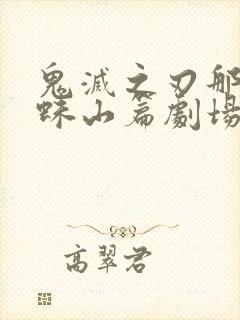 鬼滅之刃那
蛛山篇劇場
高翠君